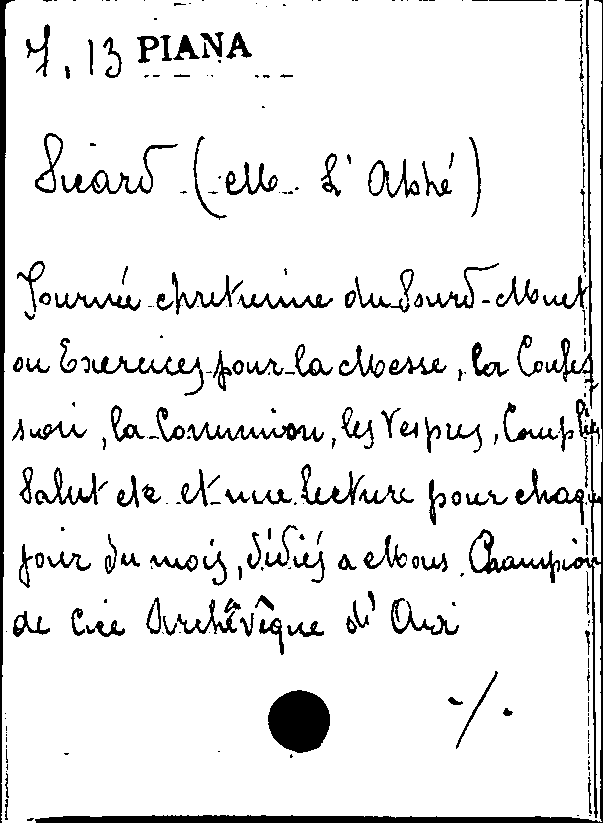 7, 13 PIANA
Sicard (M. L'Abbé)
Journée chretienne du Sourd-Muet
ou Exercices pour la Messe, la Confes
sion, la Communion, les Vespres, Complies
Salut etc et une lecture pour chaque
jour du mois, dédiés a Mons. Champion
de Cice Archêvêque d'Aix
./.